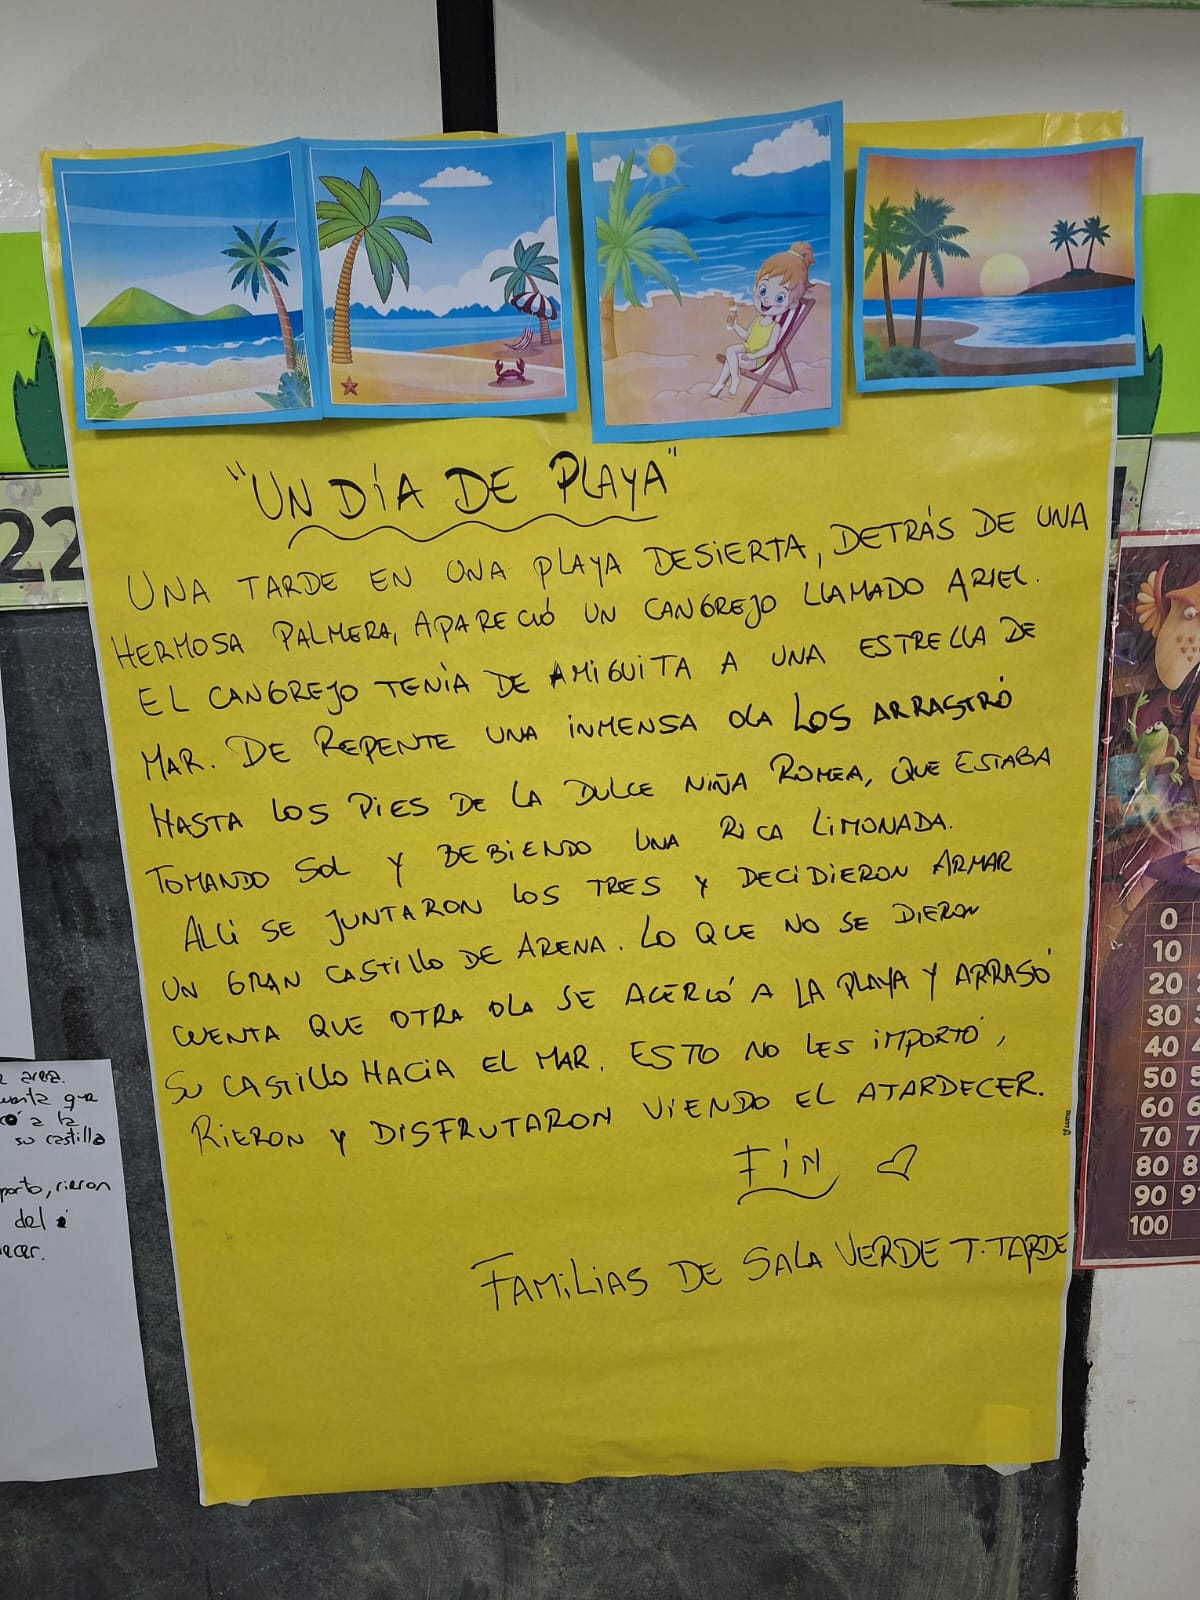 "UN DÍA DE PLAYA"
UNA TARDE EN UNA PLAYA DESIERTA, DETRÁS DE UNA
HERMOSA PALMERA, APARECIÓ UN CANGREJO LLAMADO ARIEL.
EL CANGREJO TENÍA DE AMIGUITA A UNA ESTRELLA DE
MAR. DE REPENTE UNA INMENSA OLA LOS ARRASTRÓ
HASTA LOS PIES DE LA DULCE NIÑA ROMEA, QUE ESTABA
TOMANDO SOL Y BEBIENDO UNA RICA LIMONADA.
ALLÍ SE JUNTARON LOS TRES Y DECIDIERON ARMAR
UN GRAN CASTILLO DE ARENA. LO QUE NO SE DIERON
CUENTA QUE OTRA OLA SE ACERCÓ A LA PLAYA Y ARRASÓ
SU CASTILLO HACIA EL MAR. ESTO NO LES IMPORTÓ,
RIERON Y DISFRUTARON VIENDO EL ATARDECER.
FIN
FAMILIAS DE SALA VERDE T. TARDE
22
que
ó a la
su castillo
rieron
del
0
10
20
30
40
50
60
70
80
90
100